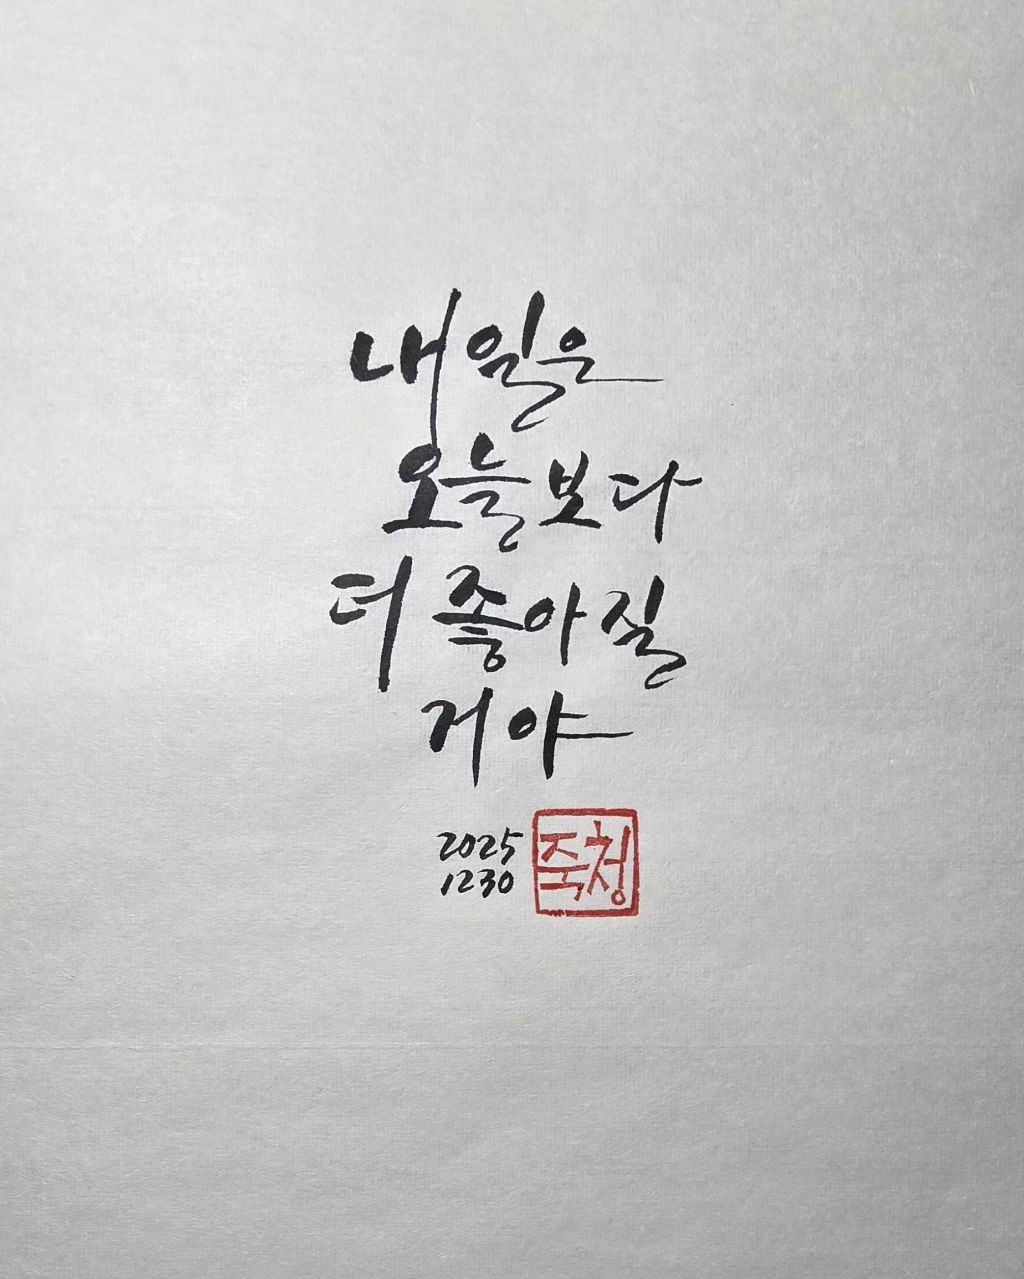 내일은
오늘보다
더 좋아질
거야
2025
1230
죽청